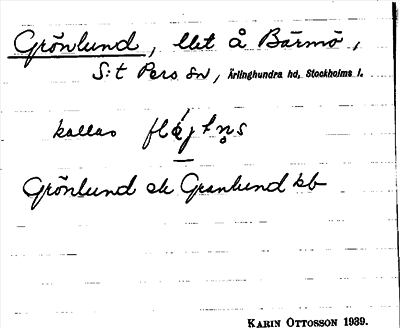 Grönlund, llet å Bärmö,
S:t Pers sn, Ärlinghundra hd, Stockholms l.
kallas
Grönlund ek Granlund kb
KARIN OTTOSSON 1939.